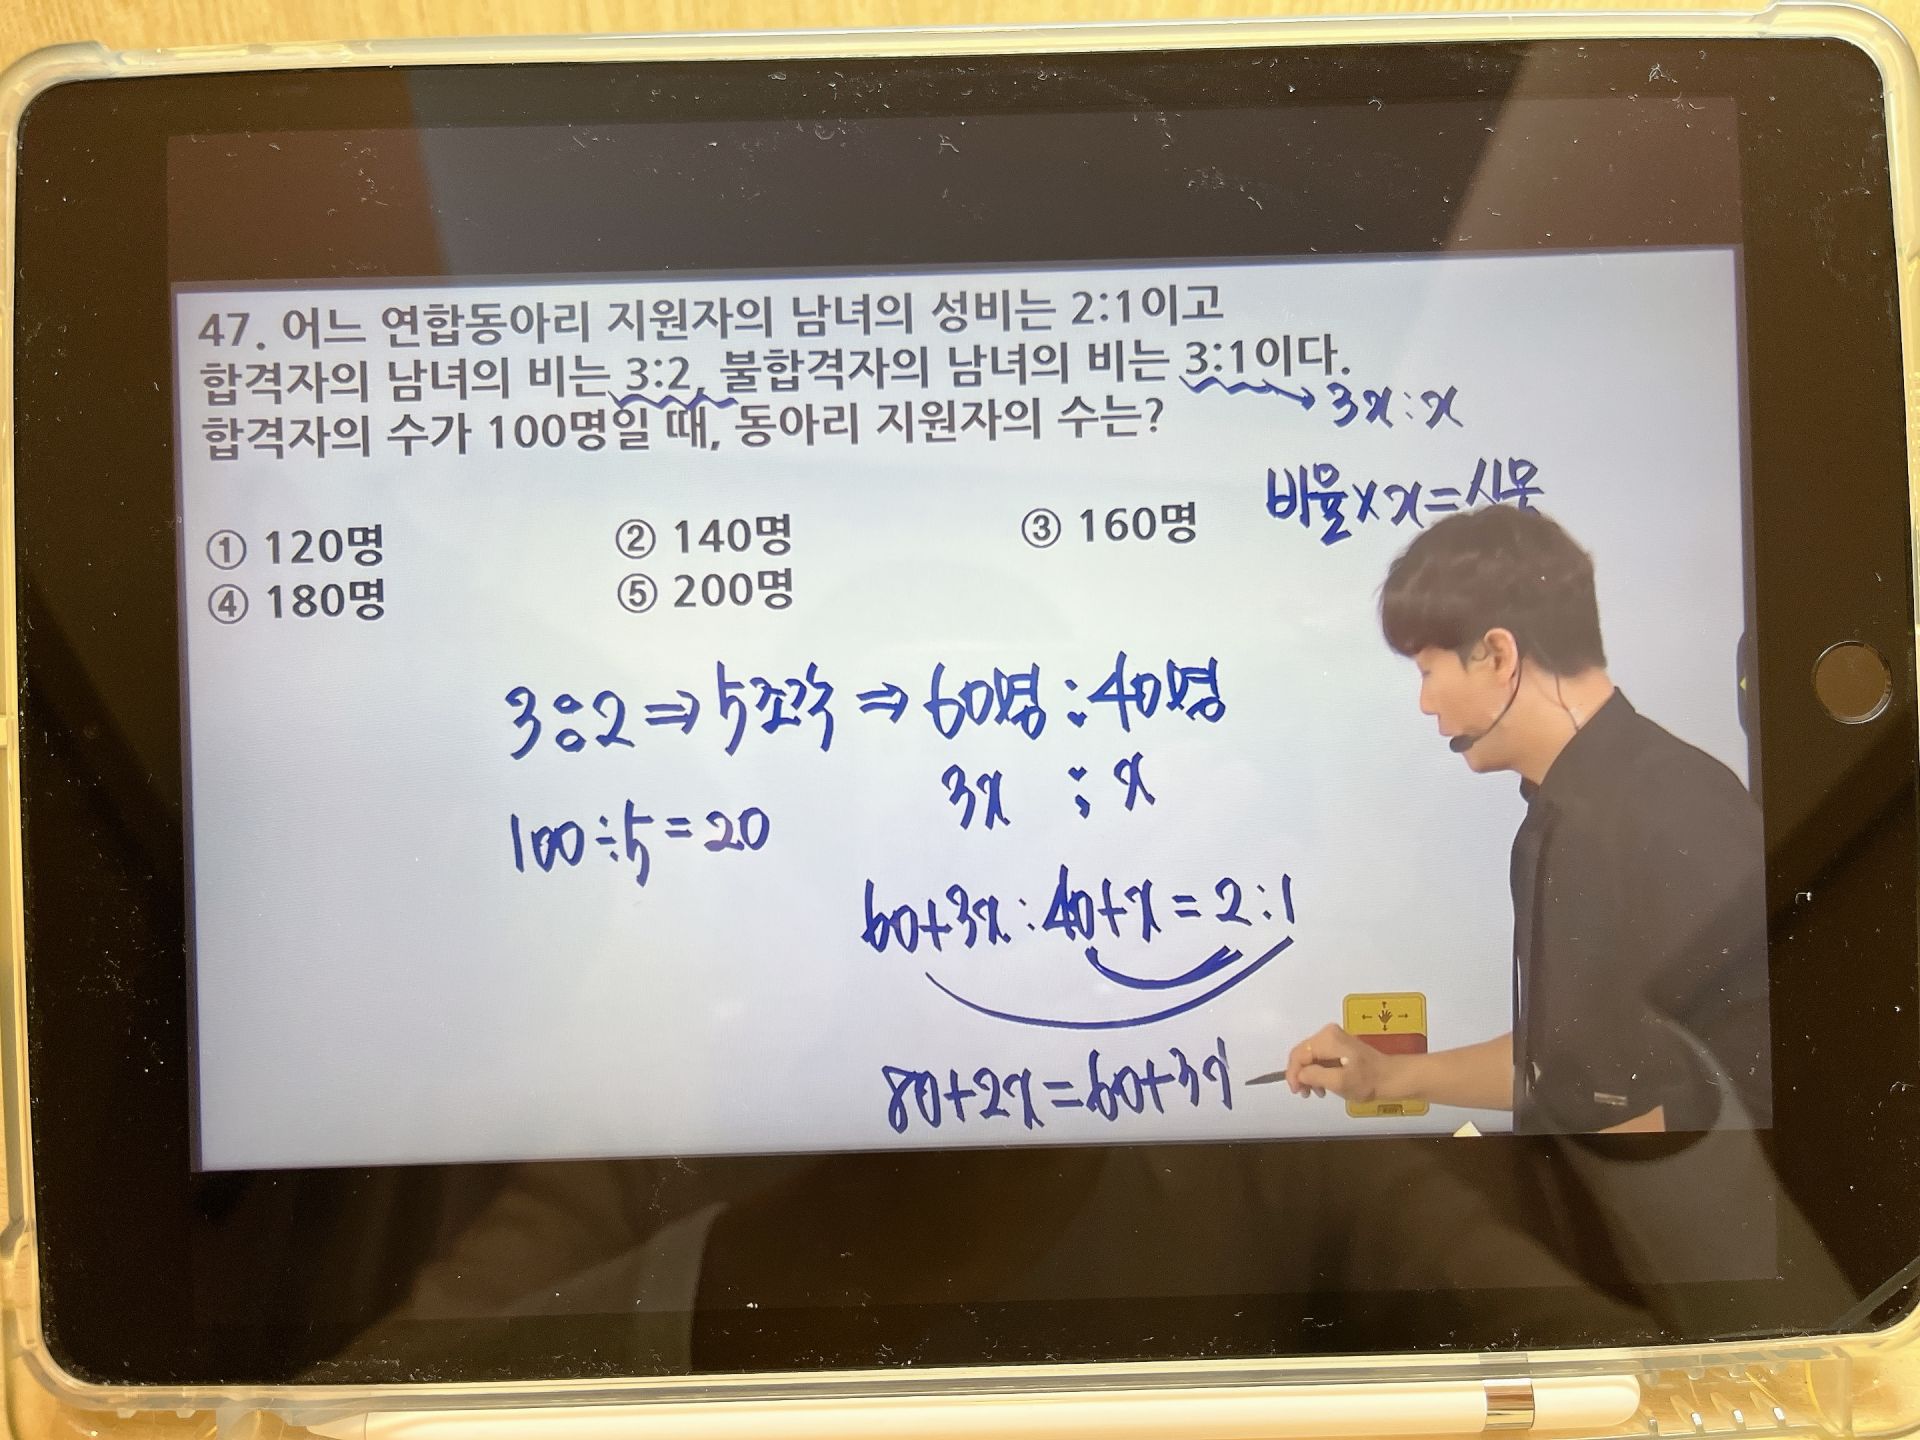 47. 어느 연합동아리 지원자의 남녀의 성비는 2:1이고
합격자의 남녀의 비는 3:2, 불합격자의 남녀의 비는 3:1이다.
합격자의 수가 100명일 때, 동아리 지원자의 수는?
3x:x
비율×x=실못
① 120명 ② 140명 ③ 160명
④ 180명 ⑤ 200명
3:2⇒5조각⇒60명:40명
3x : x
100÷5=20
60+3x:40+x=2:1
80+2x=60+3x